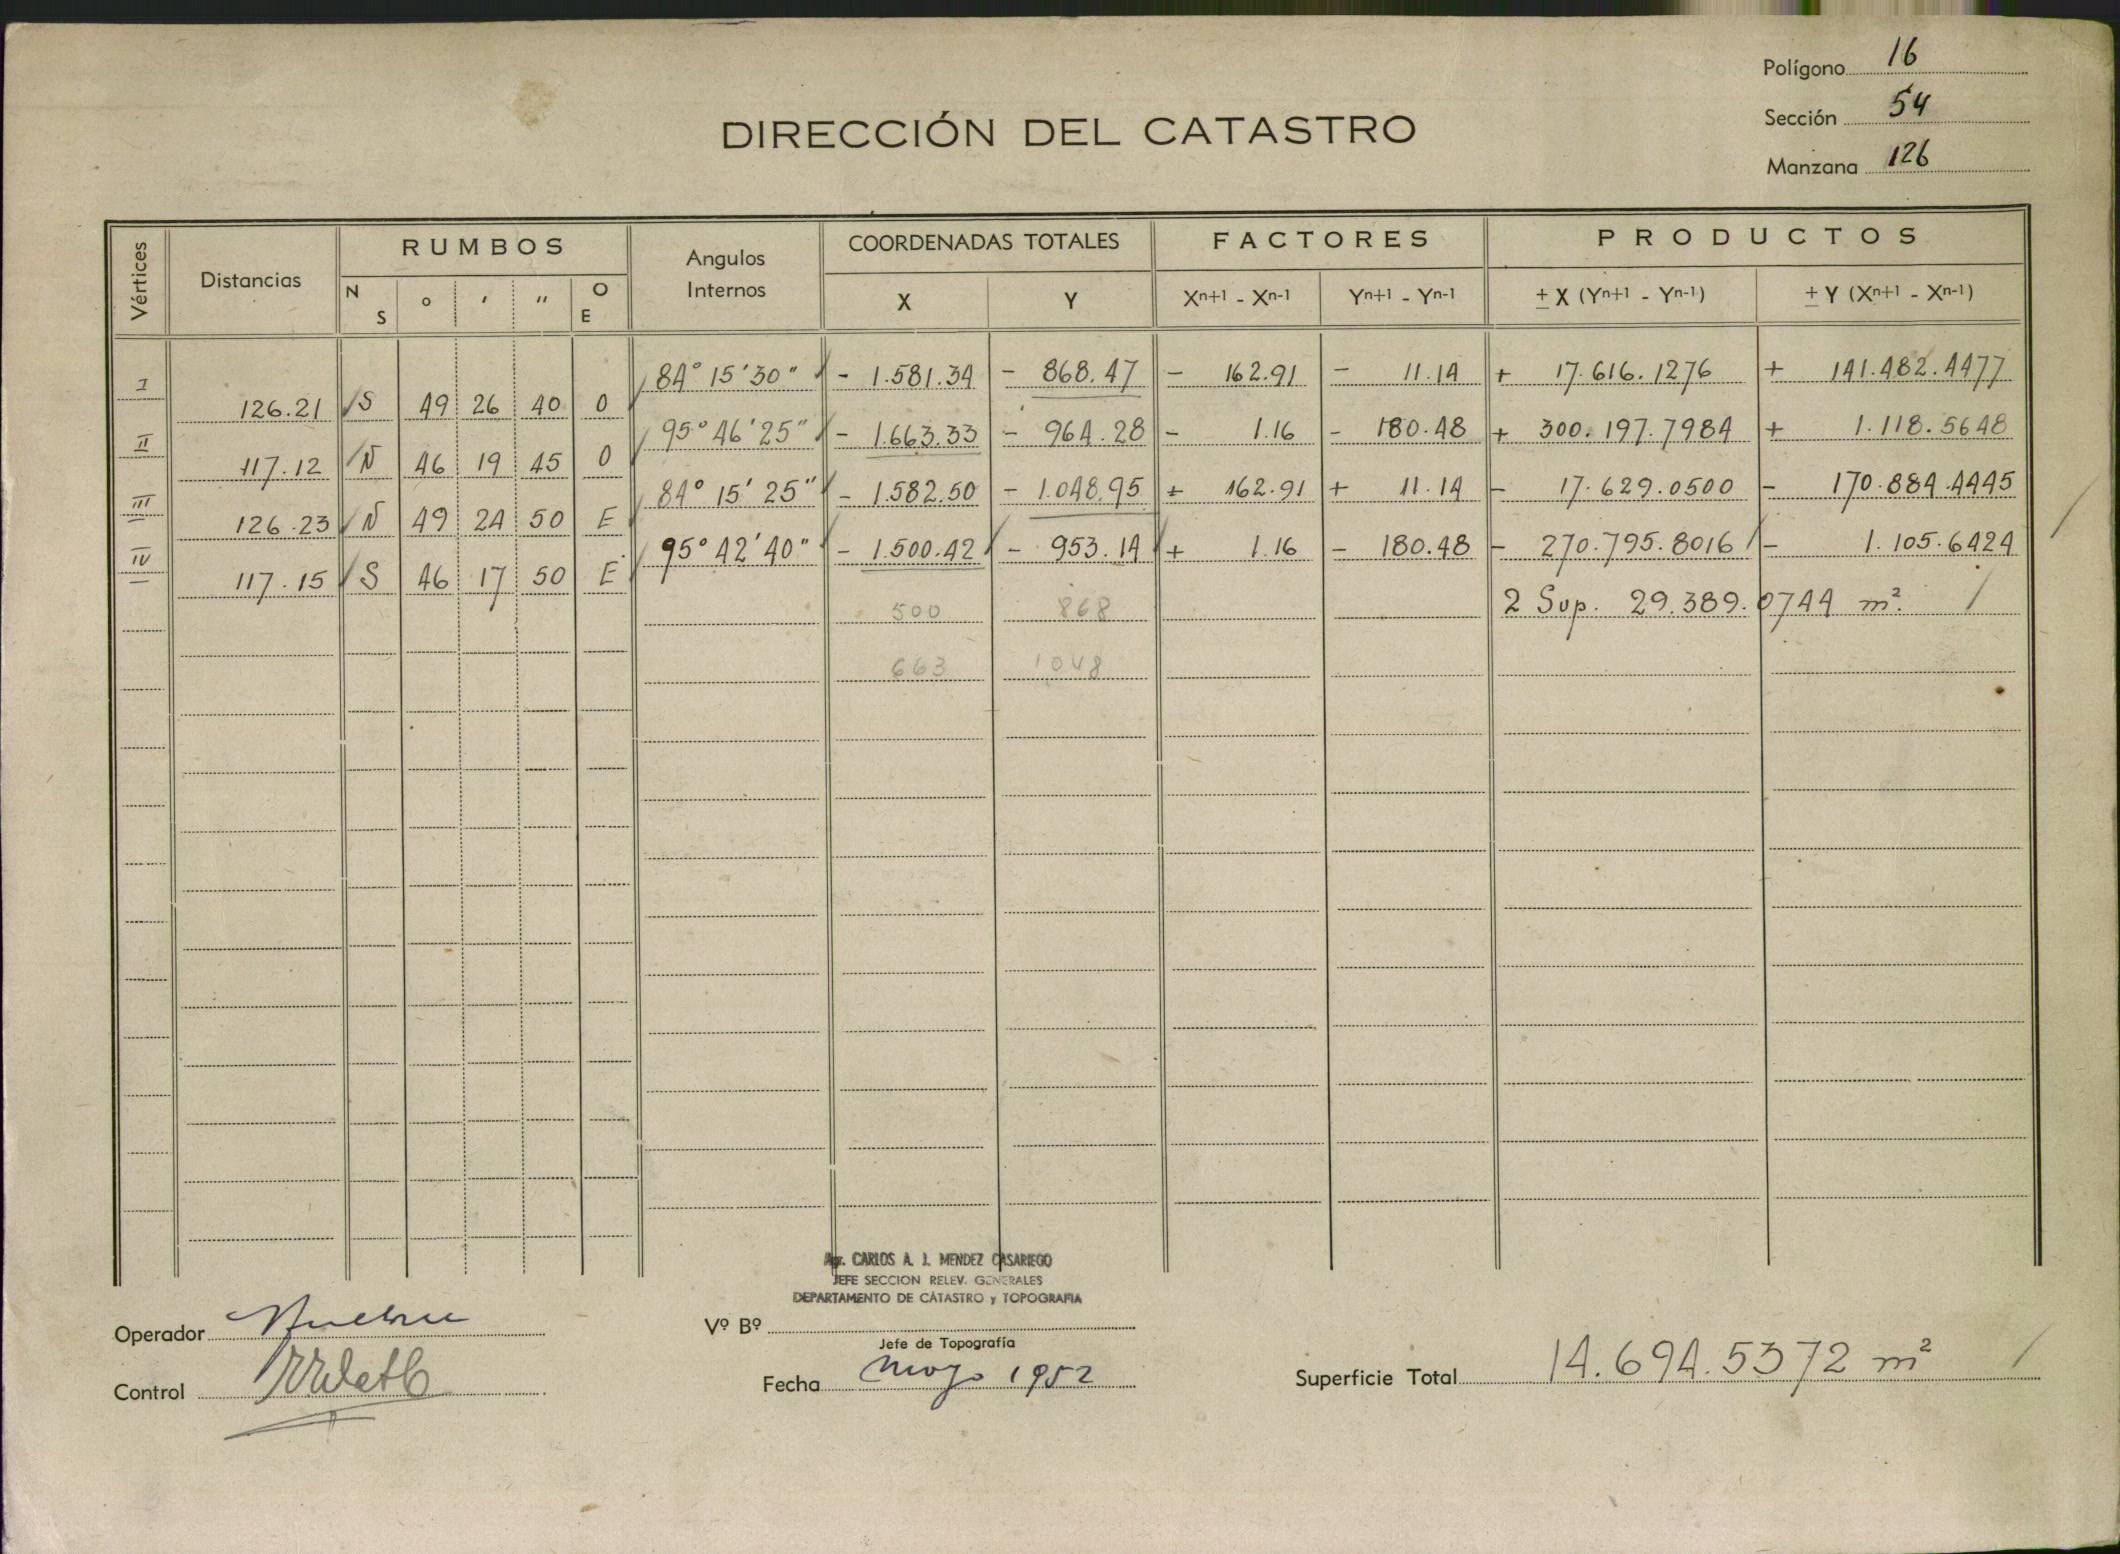 Polígono 16
Sección 54
Manzana 126
DIRECCIÓN DEL CATASTRO
Vértices Distancias RUMBOS Angulos Internos COORDENADAS TOTALES FACTORES PRODUCTOS
N S o ' " O E X Y Xn+1 - Xn-1 Yn+1 - Yn-1 ± X (Yn+1 - Yn-1) ± Y (Xn+1 - Xn-1)
I 84° 15' 30" - 1.581.34 - 868.47 - 162.91 - 11.14 + 17.616.1276 + 141.482.4477
126.21 S 49 26 40 O
II 95° 46' 25" - 1.663.33 - 964.28 - 1.16 - 180.48 + 300.197.7984 + 1.118.5648
117.12 N 46 19 45 O
III 84° 15' 25" - 1.582.50 - 1.048.95 + 162.91 + 11.14 - 17.629.0500 - 170.884.4445
126.23 N 49 24 50 E
IV 95° 42' 40" - 1.500.42 - 953.14 + 1.16 - 180.48 - 270.795.8016 - 1.105.6424
117.15 S 46 17 50 E
500 868 2 Sup. 29.389.0744 m²
663 1048
Agr. CARLOS A. J. MENDEZ CASARIEGO
JEFE SECCION RELEV. GENERALES
DEPARTAMENTO DE CATASTRO y TOPOGRAFIA
Operador
Vº Bº
Jefe de Topografía
Control
Fecha mayo 1952
Superficie Total 14.694.5372 m²